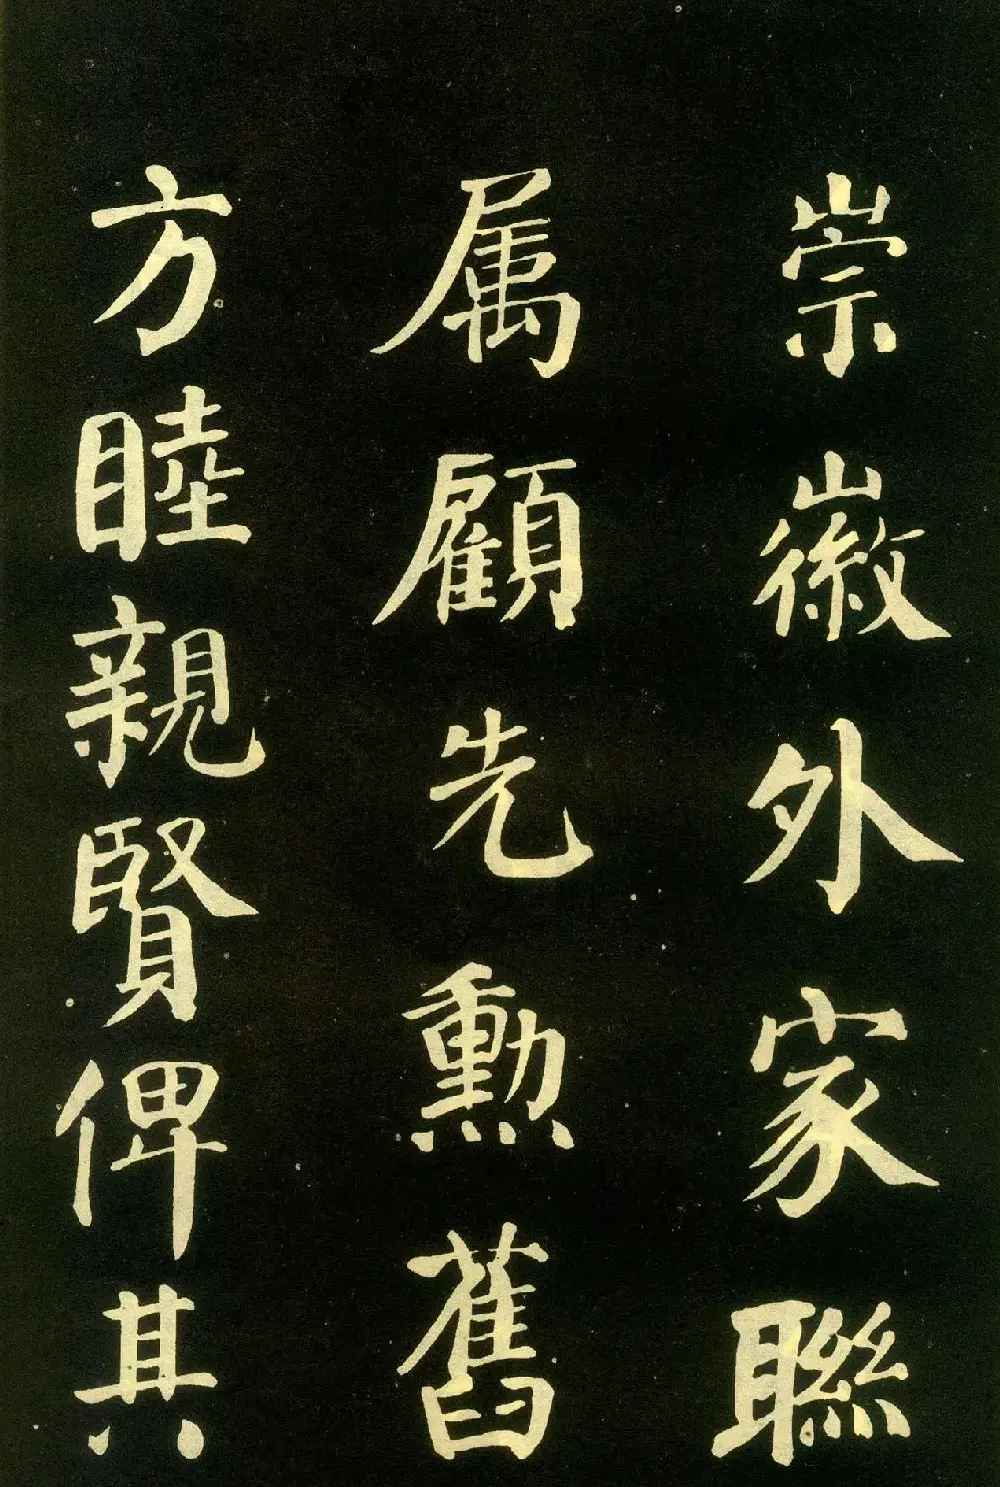 崇徽外家聯
属顧先勳舊
方睦親賢俾其